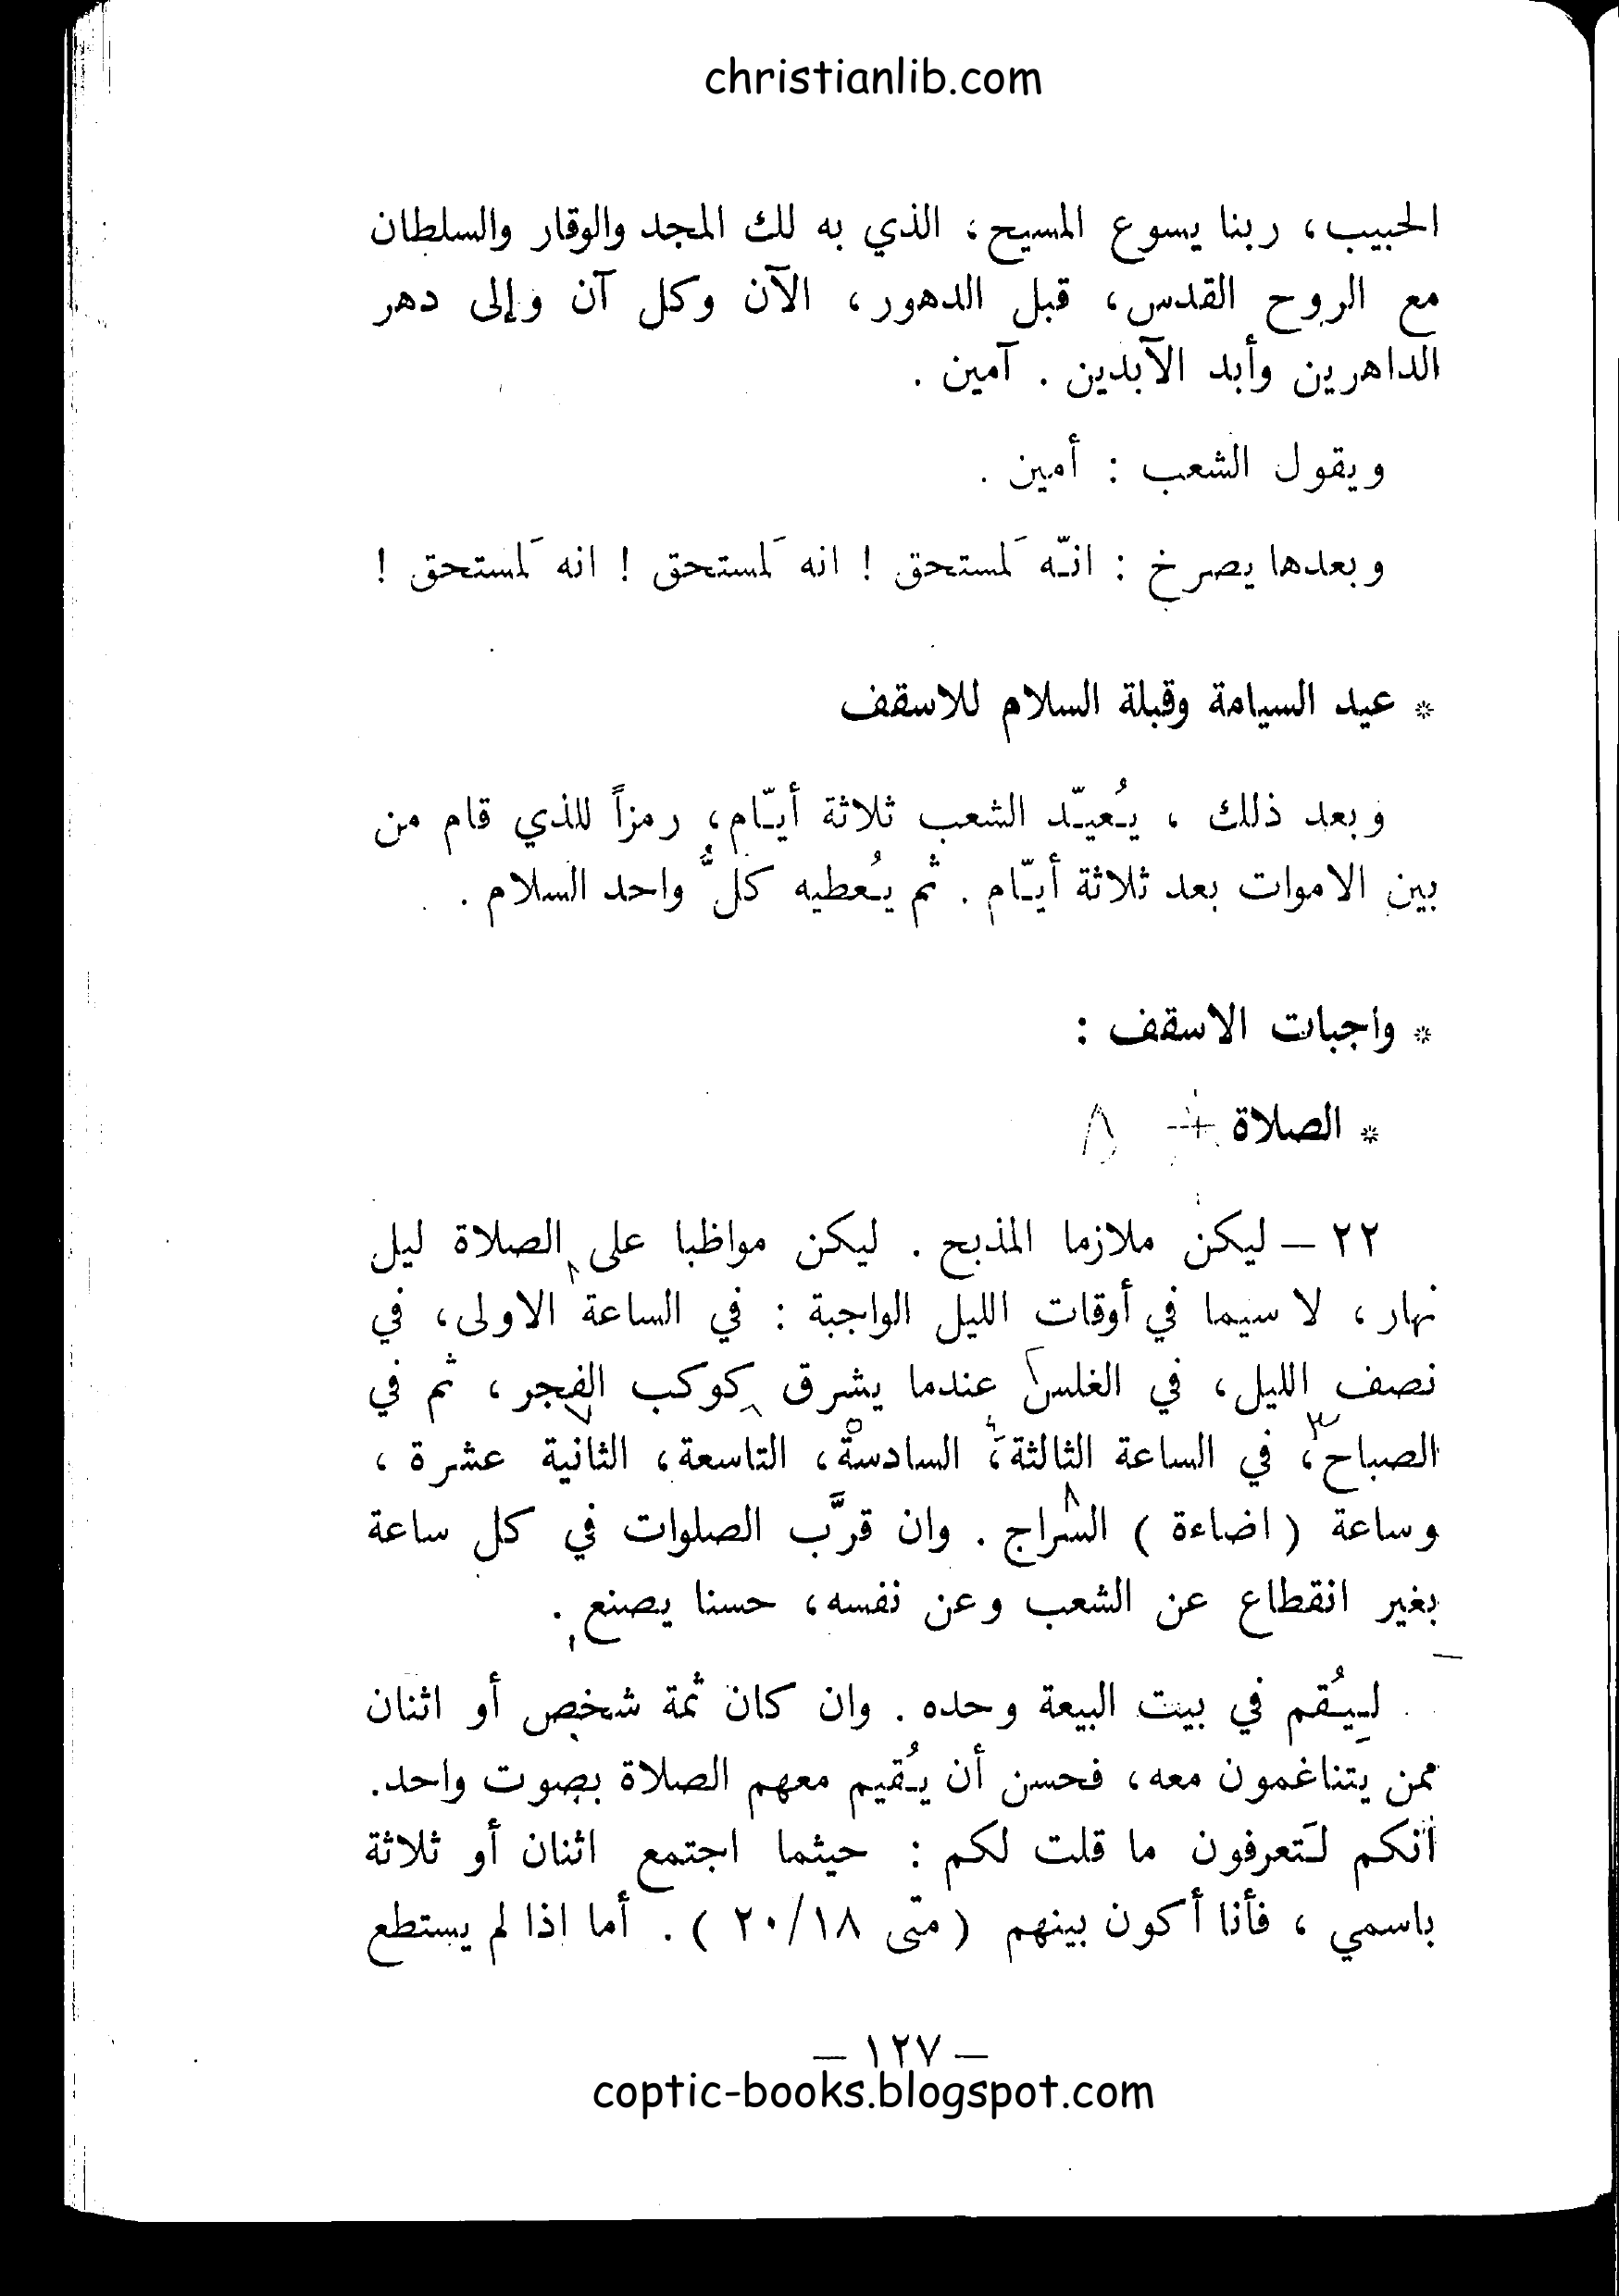 christianlib.com
الحبيب، ربنا يسوع المسيح، الذي به لك المجد والوقار والسلطان
مع الروح القدس، قبل الدهور، الآن وكل آن وإلى دهر
الداهرين وأبد الآبدين . آمين .
ويقول الشعب : أمين .
وبعدها يصرخ : انّه لَمستحق ! انه لَمستحق ! انه لَمستحق !
* عيد السيامة وقبلة السلام للاسقف
وبعد ذلك ، يُعيّد الشعب ثلاثة أيّام، رمزاً للذي قام من
بين الاموات بعد ثلاثة أيّام . ثم يُعطيه كلُّ واحد السلام .
* واجبات الاسقف :
* الصلاة + ٨
٢٢ — ليكن ملازما المذبح . ليكن مواظبا على الصلاة ليل
نهار ، لا سيما في أوقات الليل الواجبة : في الساعة الاولى، في
نصف الليل، في الغلس عندما يشرق كوكب الفجر ، ثم في
الصباح، في الساعة الثالثة، السادسة، التاسعة، الثانية عشرة ،
وساعة ( اضاءة ) السراج . وان قرَّب الصلوات في كل ساعة
بغير انقطاع عن الشعب وعن نفسه، حسنا يصنع .
لِيُقم في بيت البيعة وحده . وان كان ثمة شخص أو اثنان
ممن يتناغمون معه، فحسن أن يُقيم معهم الصلاة بصوت واحد.
أنكم لَتعرفون ما قلت لكم : حيثما اجتمع اثنان أو ثلاثة
باسمي ، فأنا أكون بينهم (متى ٢٠/١٨ ) . أما اذا لم يستطع
— ١٢٧ —
coptic-books.blogspot.com